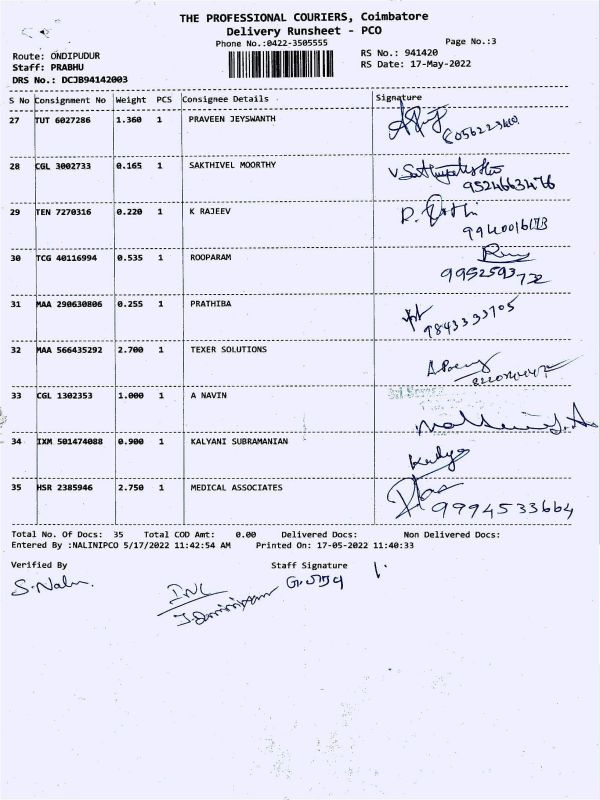 THE PROFESSIONAL COURIERS, Coimbatore
Delivery Runsheet - PCO
Phone No.:0422-3505555
Page No.:3
Route: ONDIPUDUR
RS No.: 941420
Staff: PRABHU
RS Date: 17-May-2022
DRS No.: DCJB94142003
S No Consignment No Weight PCS Consignee Details Signature
27 TUT 6027286 1.360 1 PRAVEEN JEYSWANTH
28 CGL 3002733 0.165 1 SAKTHIVEL MOORTHY
9524663476
29 TEN 7270316 0.220 1 K RAJEEV
30 TCG 40116994 0.535 1 ROOPARAM
9952593732
31 MAA 290630806 0.255 1 PRATHIBA
9843333705
32 MAA 566435292 2.700 1 TEXER SOLUTIONS
33 CGL 1302353 1.000 1 A NAVIN
34 IXM 501474088 0.900 1 KALYANI SUBRAMANIAN
35 HSR 2385946 2.750 1 MEDICAL ASSOCIATES
9994533664
Total No. Of Docs: 35 Total COD Amt: 0.00 Delivered Docs: Non Delivered Docs:
Entered By :NALINIPCO 5/17/2022 11:42:54 AM Printed On: 17-05-2022 11:40:33
Verified By Staff Signature